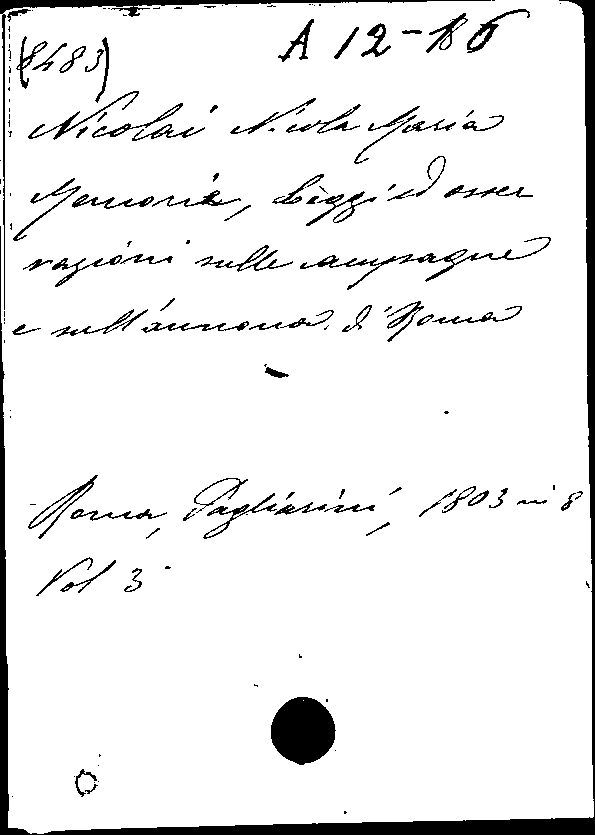 (8483) A 12-186
Nicolai Nicola Maria
Memorie, Leggi ed osser
vazioni sulle campagne
e sull'annona di Roma
Roma, Pagliarini, 1803 in 8
Vol 3